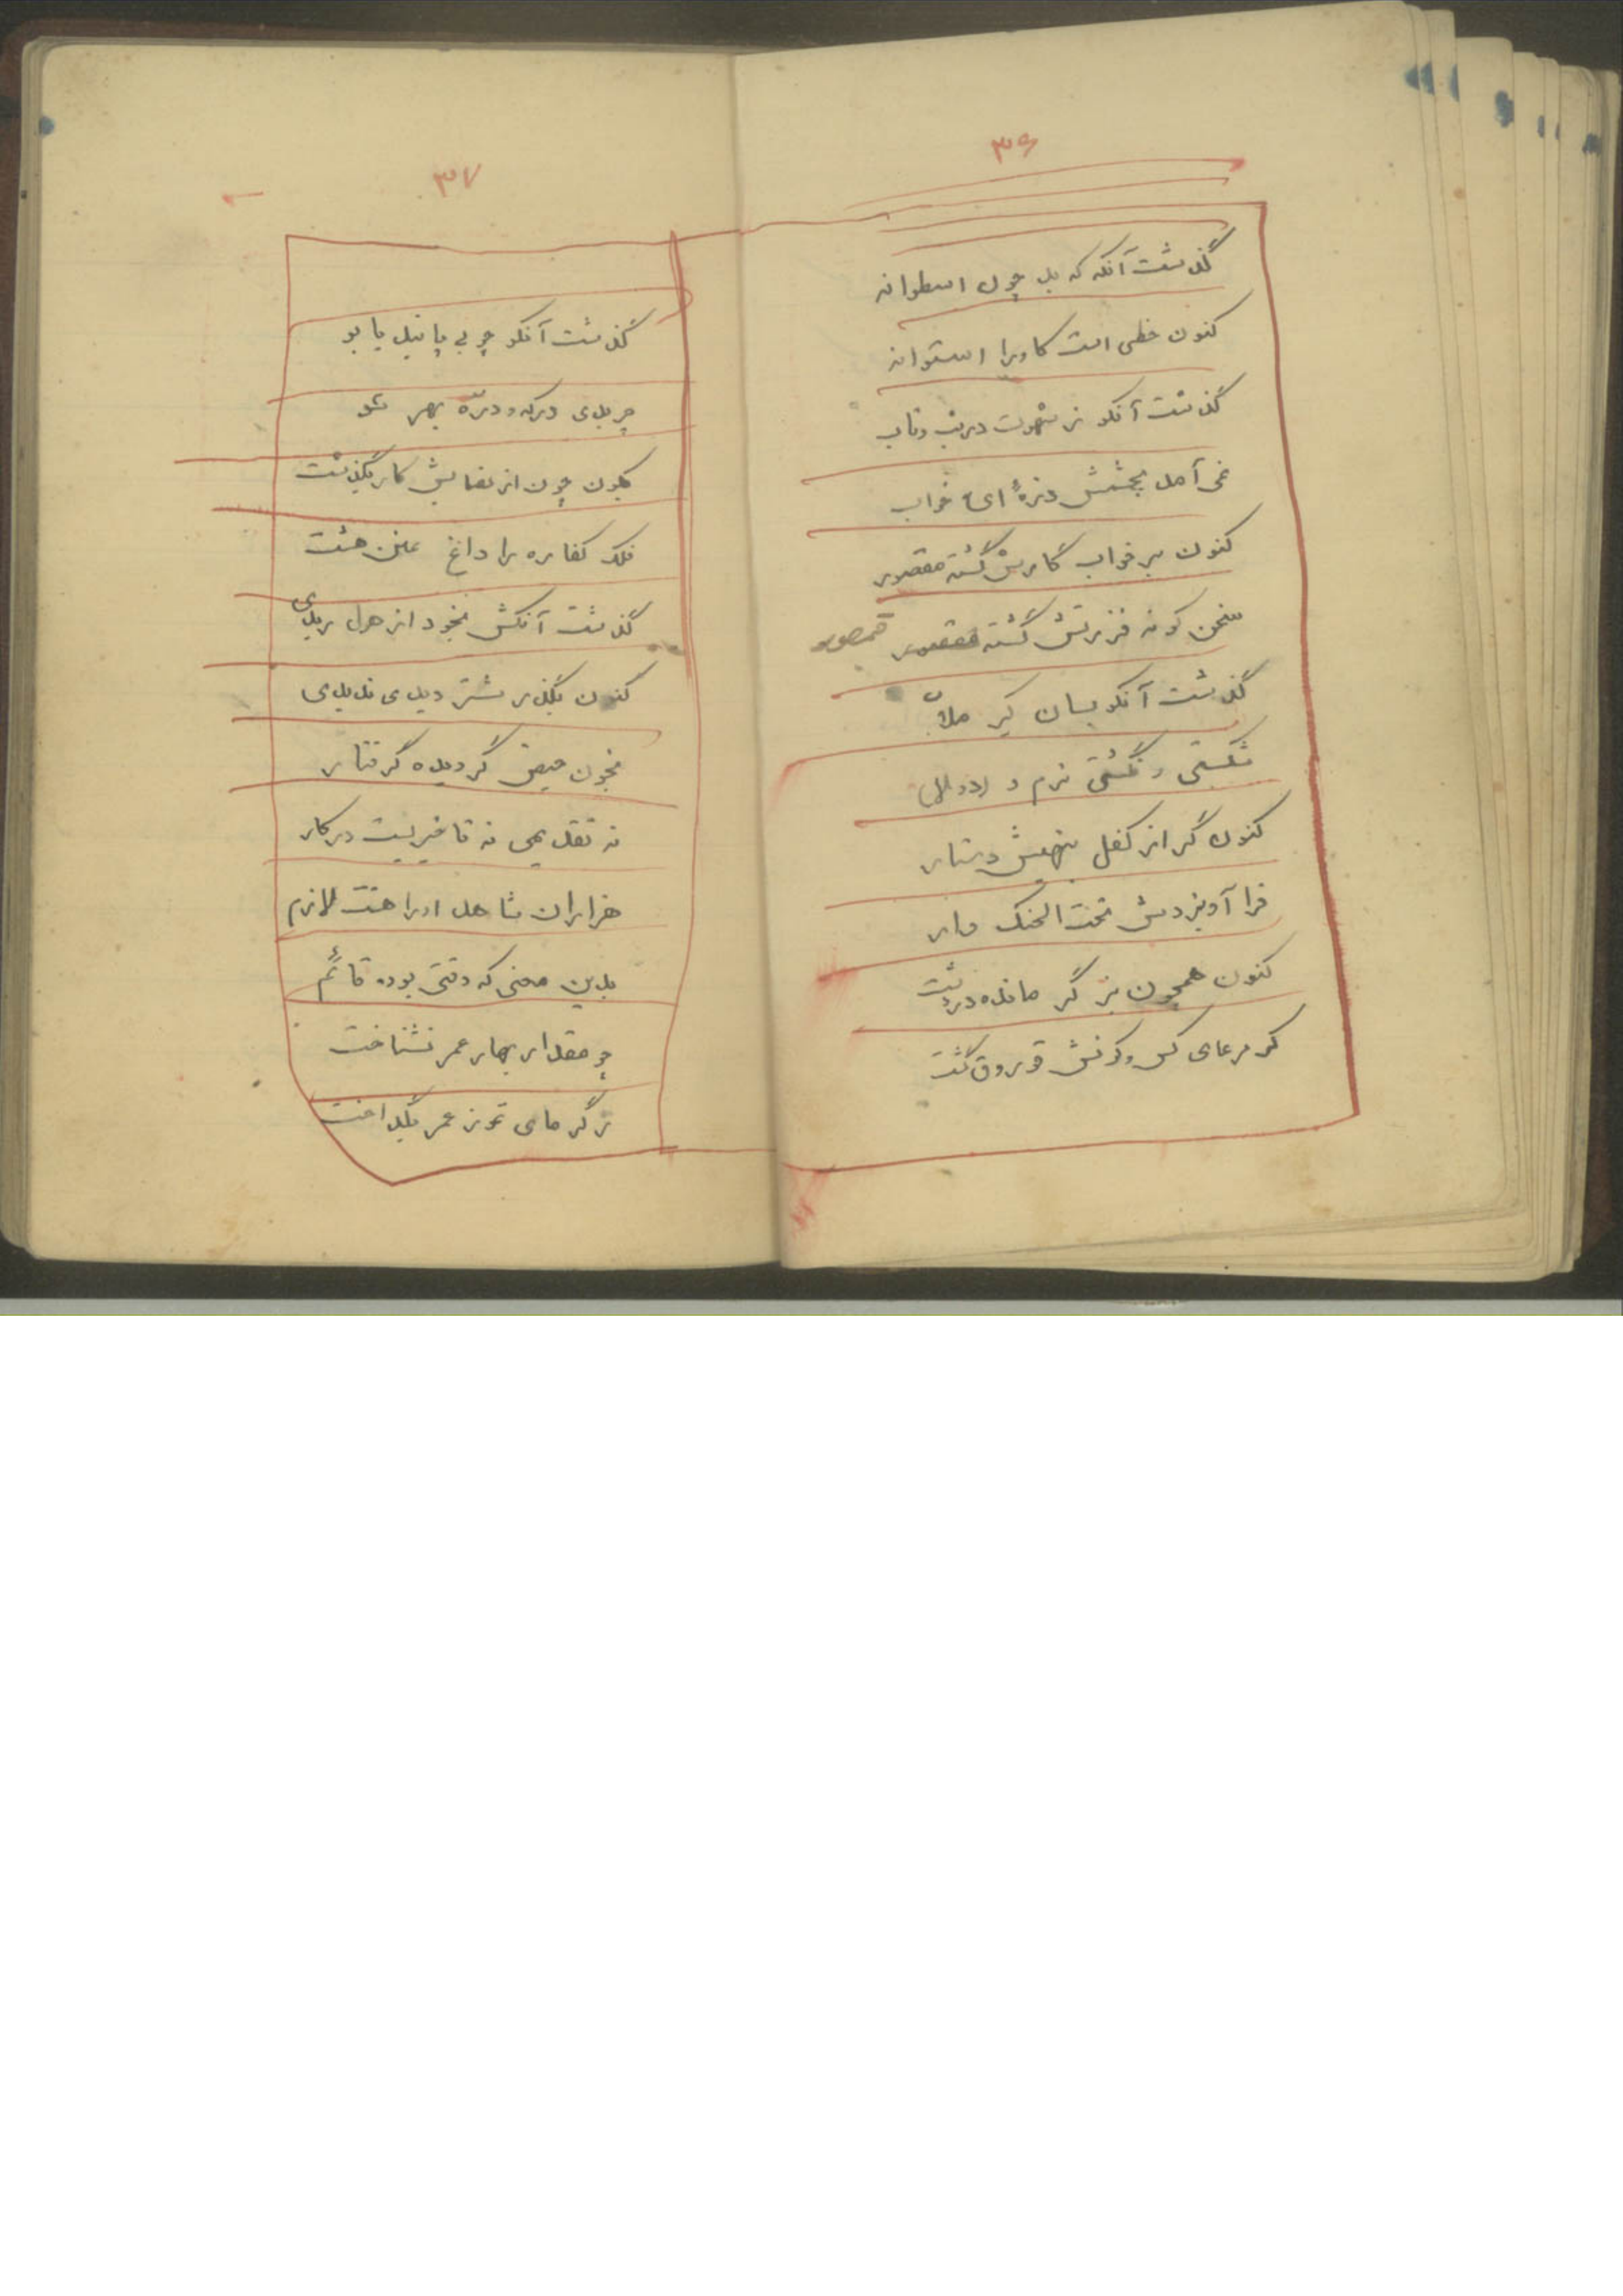 ۳۶
گذشت آنکه که بد چون اسطوانه
کنون خطی است کاورا استوانه
گذشت آنکو ز شهوت در تب وتاب
نمی آمد بچشمش ذرهٔ ای خواب
کنون بر خواب کارش گشته مقصور
سخن کوته فنرتش گشته قمصور
گذشت آنکو بسان کیر ملّا
شکستی و نگشتی نرم و
کنون گر از کفل بنهیش دستار
فرا آویزدش تحت الحنک وار
کنون همچون بز گر مانده در دشت
که مرعای کس وکونش قوروق گشت
۳۷
گذشت آنکو چو بی پا نیل یابو
چریدی در که و درّه بهر سو
کنون چون از تقایش کار بگذشت
فلک کفاره را داغ
گذشت آنکش بخود از هول ریدی
کنون بگذر شتر دیدی ندیدی
بخون حیض گردیده گرفتار
نه تقدیمی نه تاخیریست درکار
هزاران شاهد اورا هست لازم
بدین معنی که وقتی بوده قائم
چو مقدار بهار عمر نشناخت
ز گرمای تموز عمر بگداخت